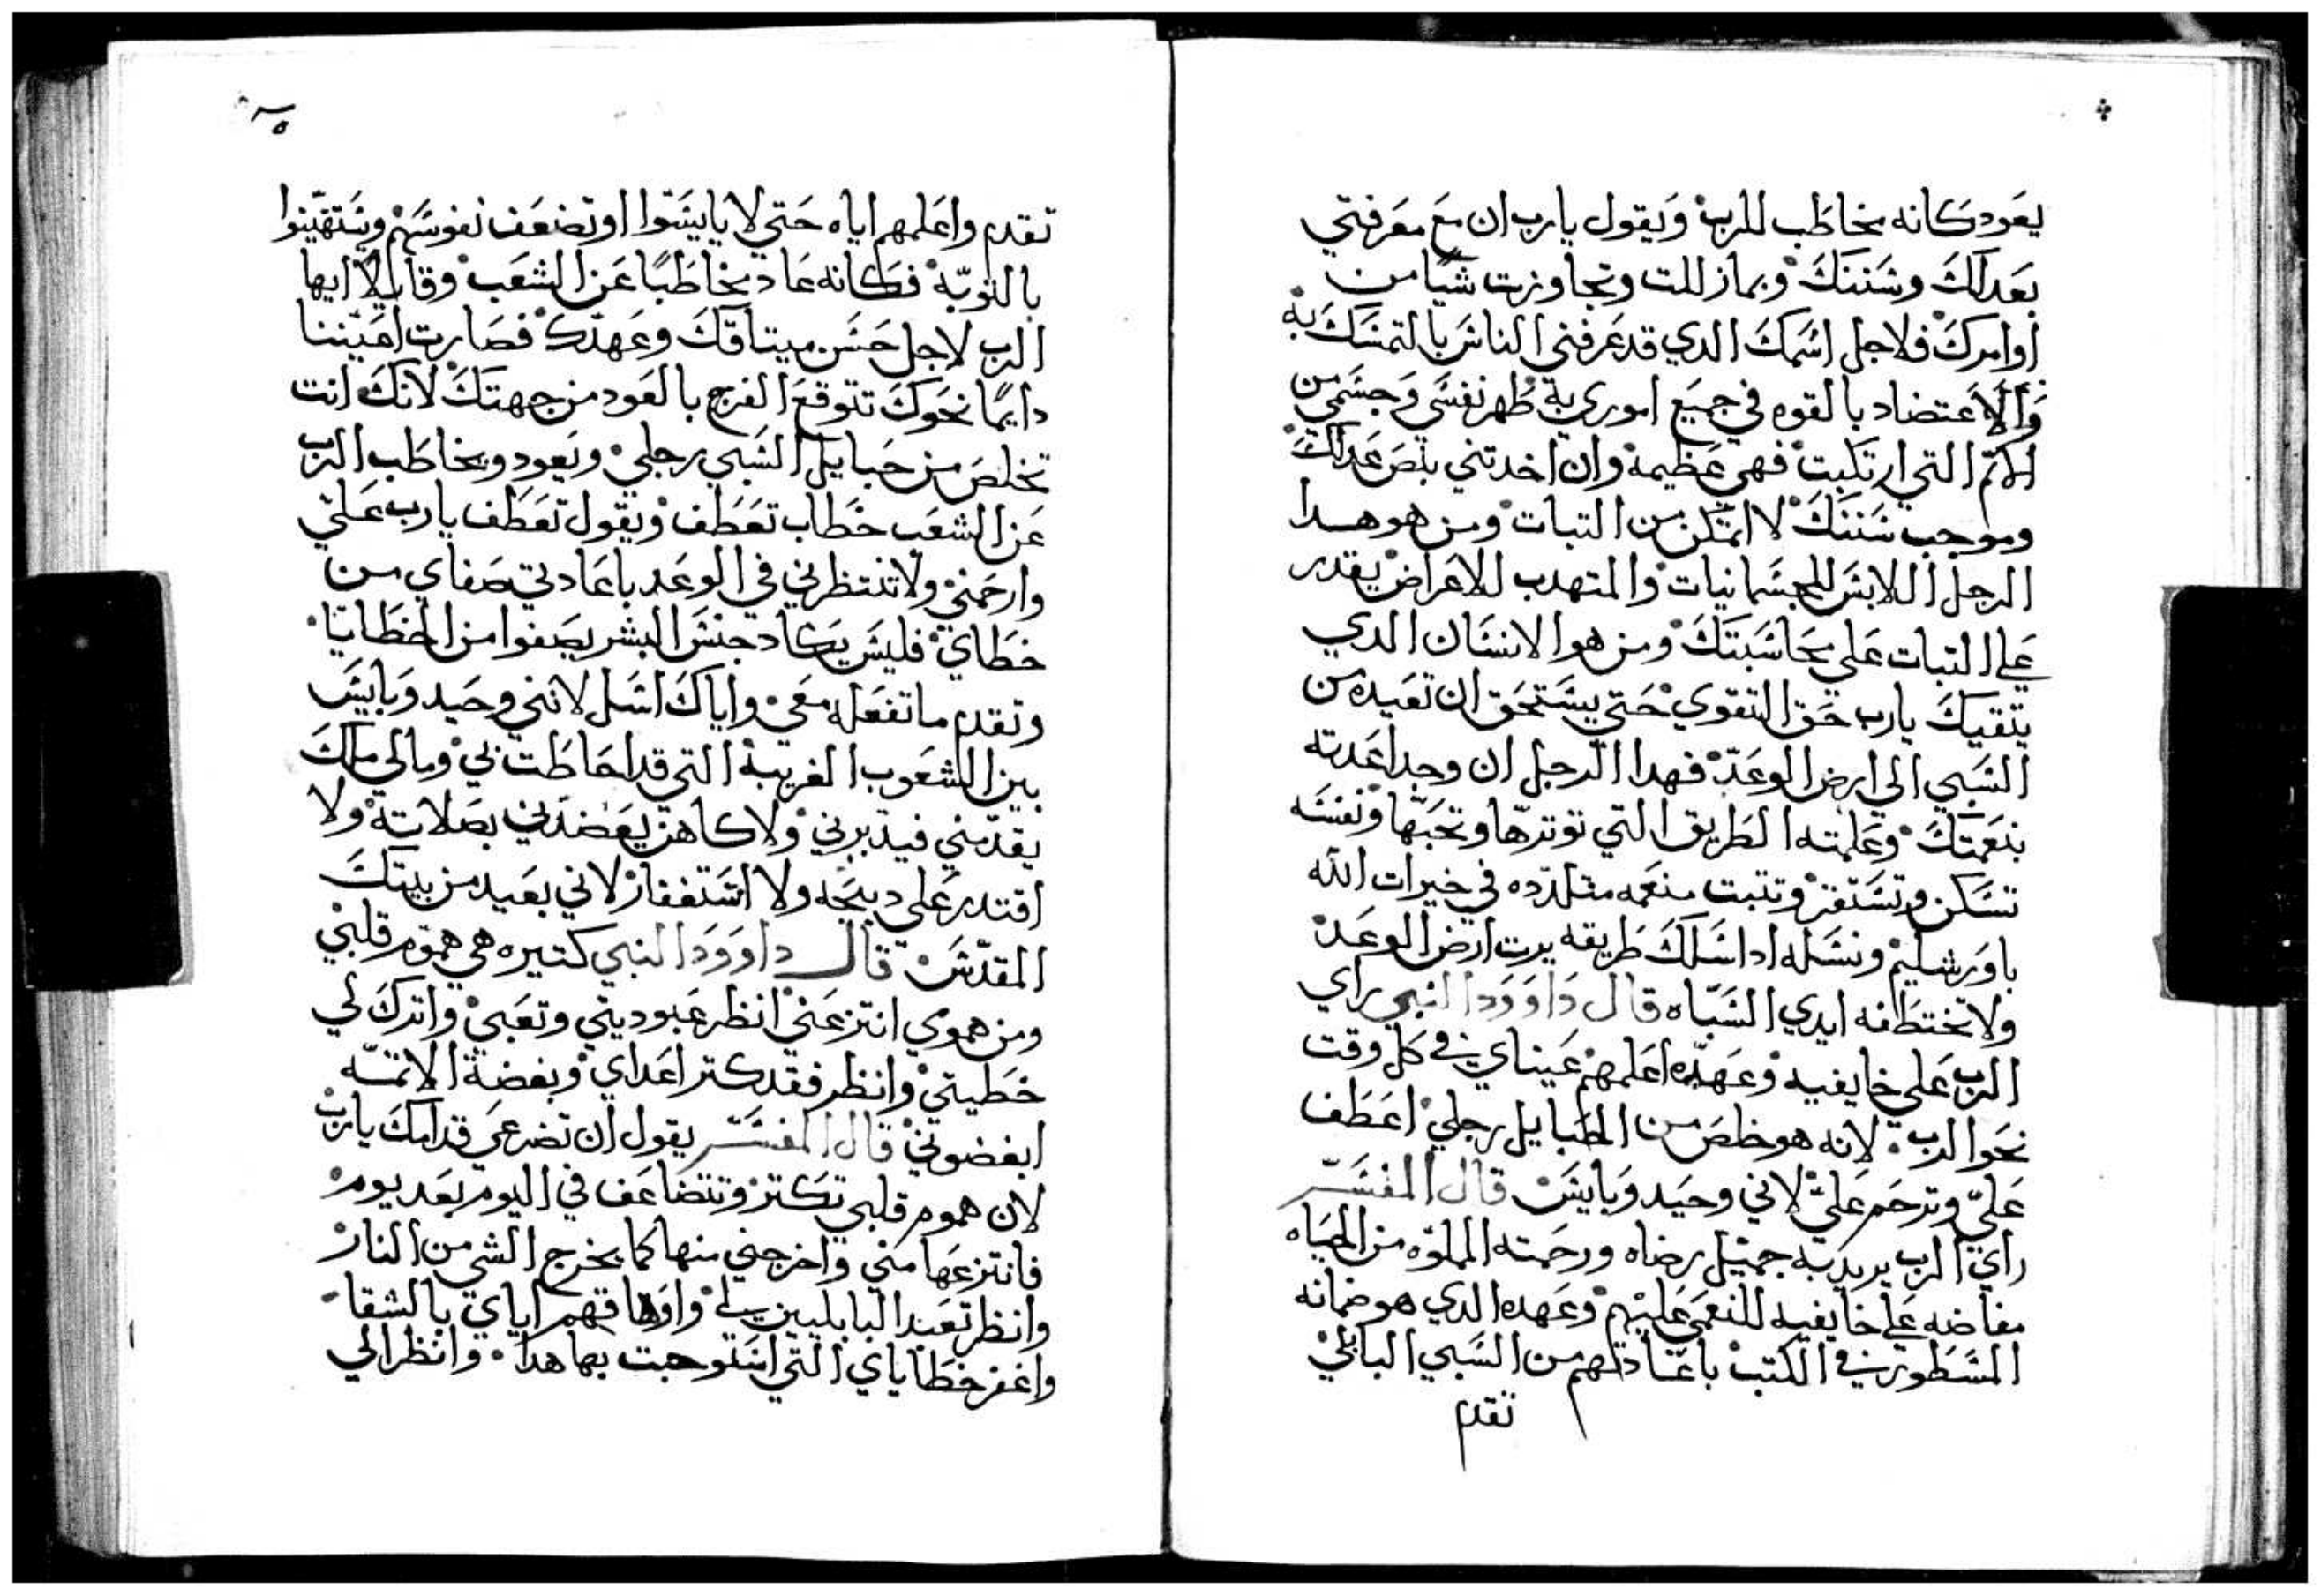 يعود كانه يخاطب للرب ويقول يارب ان مع معرفتي
بعدلك وسننك وبما زللت وتجاوزت شيا من
اوامرك فلاجل اسمك الدي قد عرفني الناس بالتمسك به
والاعتضاد بالقوه في جميع اموري به طهر نفسي وجسمي من
الاتم التي ارتكبت فهي عظيمه وان اخدتني بنص عدلك
وموجب سننك لا اتمكن من التبات ومن هو هدا
الرجل اللابس للجسمانيات والمتهدب للاعراض يقدر
علي التبات علي محاسبتك ومن هو الانسان الدي
يتقيك يارب حق التقوي حتي يستحق ان تعيده من
السبي الي ارض الوعد فهدا الرجل ان وجد اعدته
بنعمتك وعلمته الطريق التي توترها وتحبها ونفسه
تسكن وتستقر وتتبت منعمه متلدده في خيرات الله
باورشليم ونسله ادا سلك طريقه يرت ارض الوعد
ولا تختطفه ايدي السباه قال داوود النبي راي
الرب علي خايفيه وعهده اعلمهم عيناي في كل وقت
نحو الرب لانه هو خلص من الحبايل رجلي اعطف
علي وترحم علي لاني وحيد وبايس قال المفسر
راي الرب يريد به جميل رضاه ورحمته المملوه من الحياه
مفاضه علي خايفيه للنعمي عليهم وعهده الدي هو ضمانه
المسطور في الكتب باعادتهم من السبي البابلي
تقدم
تقدم واعلمهم اياه حتي لا يايسوا او تضعف نفوسهم ويستهينوا
بالتوبه فكانه عاد يخاطبا عن الشعب وقايلا ايها
الرب لاجل حسن ميتاقك وعهدك فصارت اعيننا
دايما نحوك تتوقع الفرج بالعود من جهتك لانك انت
تخلص من حبايل السبي رجلي ويعود ويخاطب الرب
عن الشعب خطاب تعطف ويقول تعطف يارب علي
وارحمني ولا تنتظرني في الوعد باعادتي صفاي من
خطاي فليس يكاد جنس البشر يصفوا من الخطايا
وتقدم ما تفعله معي واياك اسل لانني وحيد وبايس
بين الشعوب الغريبه التي قد احاطت بي ومالي ملك
يقدمني فيدبرني ولا كاهن يعضدني بصلاته ولا
اقتدر علي دبيحه ولا استغفار لاني بعيد من بيتك
المقدس قال داوود النبي كتيره هي هموم قلبي
ومن همومي انتزعني انظر عبوديتي وتعبي واترك لي
خطيتي وانظر فقد كتر اعداي وبغضة الاتمه
ابغضوني قال المفسر يقول ان تضرعي قدامك يارب
لان هموم قلبي تكتر وتتضاعف في اليوم بعد يوم
فانتزعها مني واخرجني منها كما يخرج الشي من النار
وانظر تعبد البابليين لي وارهاقهم اياي بالشقا
واغفر خطاياي التي استوجبت بها هدا وانظر الي